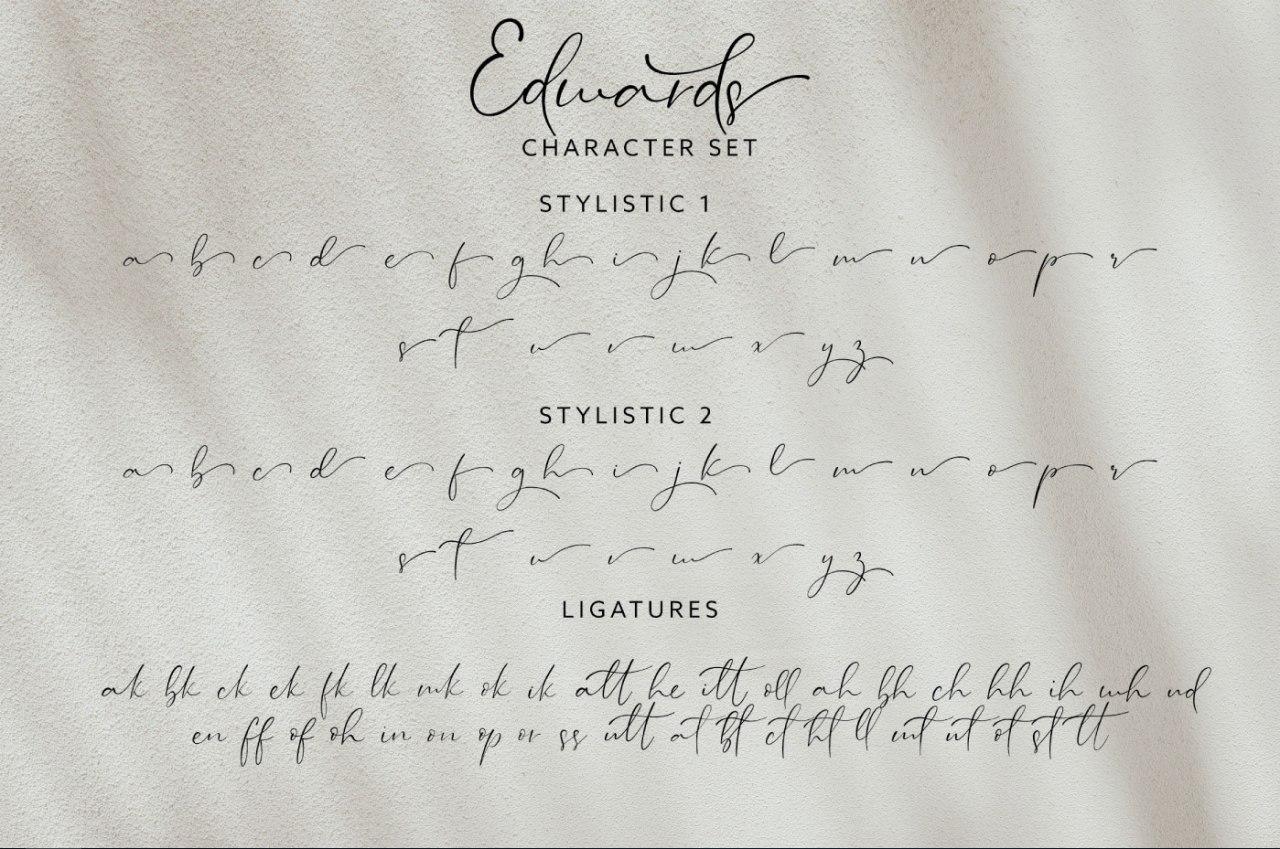 Edwards
CHARACTER SET
STYLISTIC 1
a b c d e f g h i j k l m n o p r
s t u v w x y z
STYLISTIC 2
a b c d e f g h i j k l m n o p r
s t u v w x y z
LIGATURES
ak bk ck ek fk lk mk ok ik att he itt oll ah bh ch hh ih mh nd
en ff of oh in on op or ss utt at bt ct ht lt mt nt ot st tt